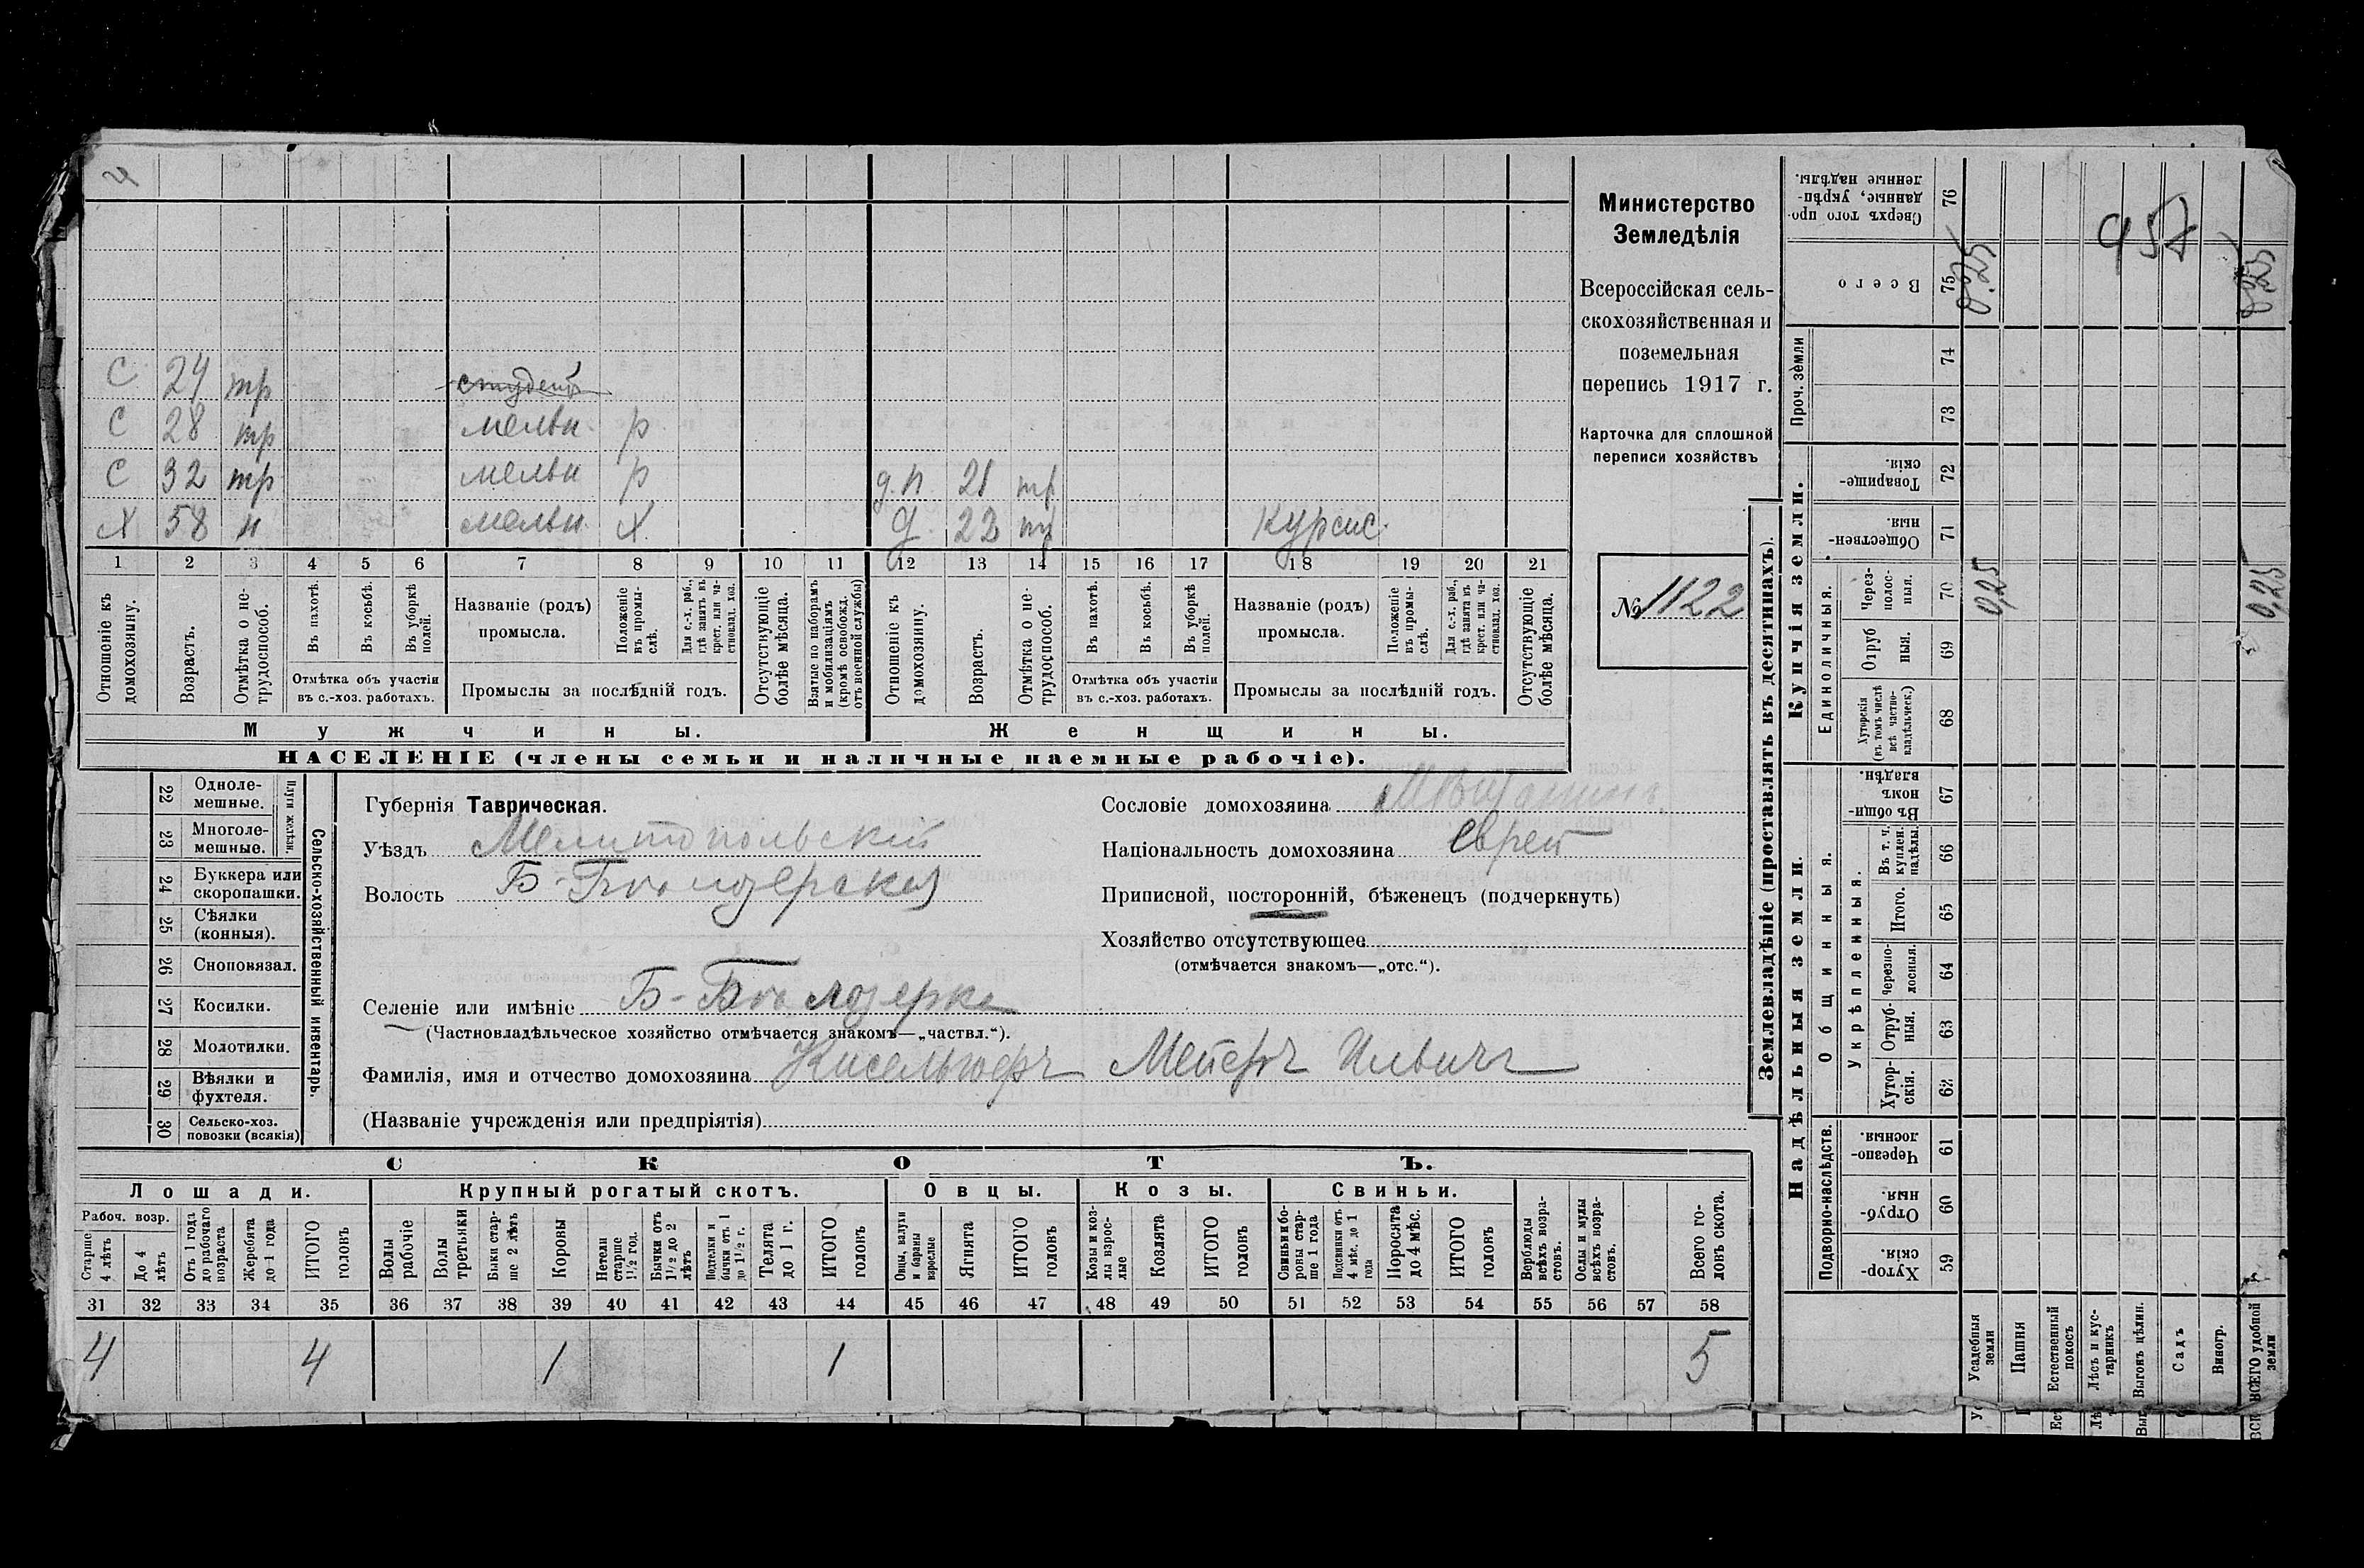 4
С 24 тр студент
С 28 тр мельн. р
С 32 тр мельн р д. п. 21 тр
Х 58 н мельн. х. д 22 тр Курсис.
1 2 3 4 5 6 7 8 9 10 11 12 13 14 15 16 17 18 19 20 21
Отношеніе къ домохозяину.
Возрастъ.
Отмѣтка о не-
трудоспособ.
Въ пахотѣ.
Въ косьбѣ.
Въ уборкѣ полей.
Отмѣтка объ участіи
въ с.-хоз. работахъ.
Названіе (родъ)
промысла.
Положеніе
въ промы-
слѣ.
Для с.-х. раб.,
гдѣ занятъ въ
крест. или ча-
стновлад. хоз.
Промыслы за послѣдній годъ.
Отсутствующіе
болѣе мѣсяца.
Взятые по наборамъ
и мобилизаціямъ
(кромѣ освобожд.
отъ военной службы)
Отношеніе къ
домохозяину.
Возрастъ.
Отмѣтка о не-
трудоспособ.
Въ пахотѣ.
Въ косьбѣ.
Въ уборкѣ
полей.
Отмѣтка объ участіи
въ с.-хоз. работахъ.
Названіе (родъ)
промысла.
Положеніе
въ промы-
слѣ.
Для с.-х. раб.,
гдѣ занята въ
крест. или ча-
стновлад. хоз.
Промыслы за послѣдній годъ.
Отсутствующіе
болѣе мѣсяца.
Мужчины.
Женщины.
НАСЕЛЕНІЕ (члены семьи и наличные наемные рабочіе).
Министерство
Земледѣлія
Всероссійская сель-
скохозяйственная и
поземельная
перепись 1917 г.
Карточка для сплошной
переписи хозяйствъ
№ 1122
22 Одноле-
мешные.
23 Многоле-
мешные.
Плуги желѣзн.
24 Буккера или
скоропашки.
25 Сѣялки
(конныя).
26 Сноповязал.
27 Косилки.
28 Молотилки.
29 Вѣялки и
фухтеля.
30 Сельско-хоз.
повозки (всякія)
Сельско-хозяйственный инвентарь.
Губернія Таврическая.
Уѣздъ Мелитопольскій
Волость Б-Бѣлозерская
Селеніе или имѣніе Б-Бѣлозерка
(Частновладѣльческое хозяйство отмѣчается знакомъ—„частвл.“).
Фамилія, имя и отчество домохозяина Кисельгофъ Мейеръ Ильичъ
(Названіе учрежденія или предпріятія)
Сословіе домохозяина Мѣщанинъ
Національность домохозяина еврей
Приписной, посторонній, бѣженецъ (подчеркнуть)
Хозяйство отсутствующее
(отмѣчается знакомъ—„отс.“).
СКОТЪ.
Лошади.
Крупный рогатый скотъ.
Овцы.
Козы.
Свиньи.
Рабоч. возр.
Старше
4 лѣтъ
До 4
лѣтъ
Отъ 1 года
до рабочаго
возраста
Жеребята
до 1 года
ИТОГО
головъ
Волы
рабочіе
Волы
третьяки
Быки стар-
ше 2 лѣтъ
Коровы
Нетели
старше
1½ год.
Бычки отъ
1½ до 2
лѣтъ
Подтелки и
бычки отъ 1
до 1½ г.
Телята
до 1 г.
ИТОГО
головъ
Овцы, валухи
и бараны
взрослые
Ягнята
ИТОГО
головъ
Козы и коз-
лы взрос-
лые
Козлята
ИТОГО
головъ
Свиньи и бо-
ровы стар-
ше 1 года
Подсвинки отъ
4 мѣс. до 1
года
Поросята
до 4 мѣс.
ИТОГО
головъ
Верблюды
всѣхъ возра-
стовъ.
Ослы и мулы
всѣхъ возра-
стовъ.
Всего го-
ловъ скота.
31 32 33 34 35 36 37 38 39 40 41 42 43 44 45 46 47 48 49 50 51 52 53 54 55 56 57 58
4 4 1 1 5
Землевладѣніе (проставлять въ десятинахъ).
Сверхъ того про-
данные, укрѣп-
ленные надѣлы.
76
Всего
75
0,25
957
0,25
Проч. земли
74
73
Купчія земли.
Товарище-
скія.
72
Обществен-
ныя.
71
Единоличныя.
Через-
полос-
ныя.
70
0,25
0,25
Отруб
ныя.
69
Хуторскія
(въ томъ числѣ
всѣ частно-
владѣльческ.)
68
Надѣльныя земли.
Общинныя.
Въ общи-
номъ
владѣн.
67
Укрѣпленныя.
Въ т. ч.
куплен.
надѣлы.
66
Итого.
65
Черезпо-
лосныя.
64
Отруб-
ныя.
63
Хутор-
скія.
62
Подворно-наслѣдств.
Черезпо-
лосныя.
61
Отруб-
ныя.
60
Хутор-
скія.
59
Усадебныя
земли
Пашня
Естественный
покосъ
Лѣсъ и кус-
тарникъ
Выгонъ цѣлин.
Садъ
Виногр.
ВСЕГО удобной
земли